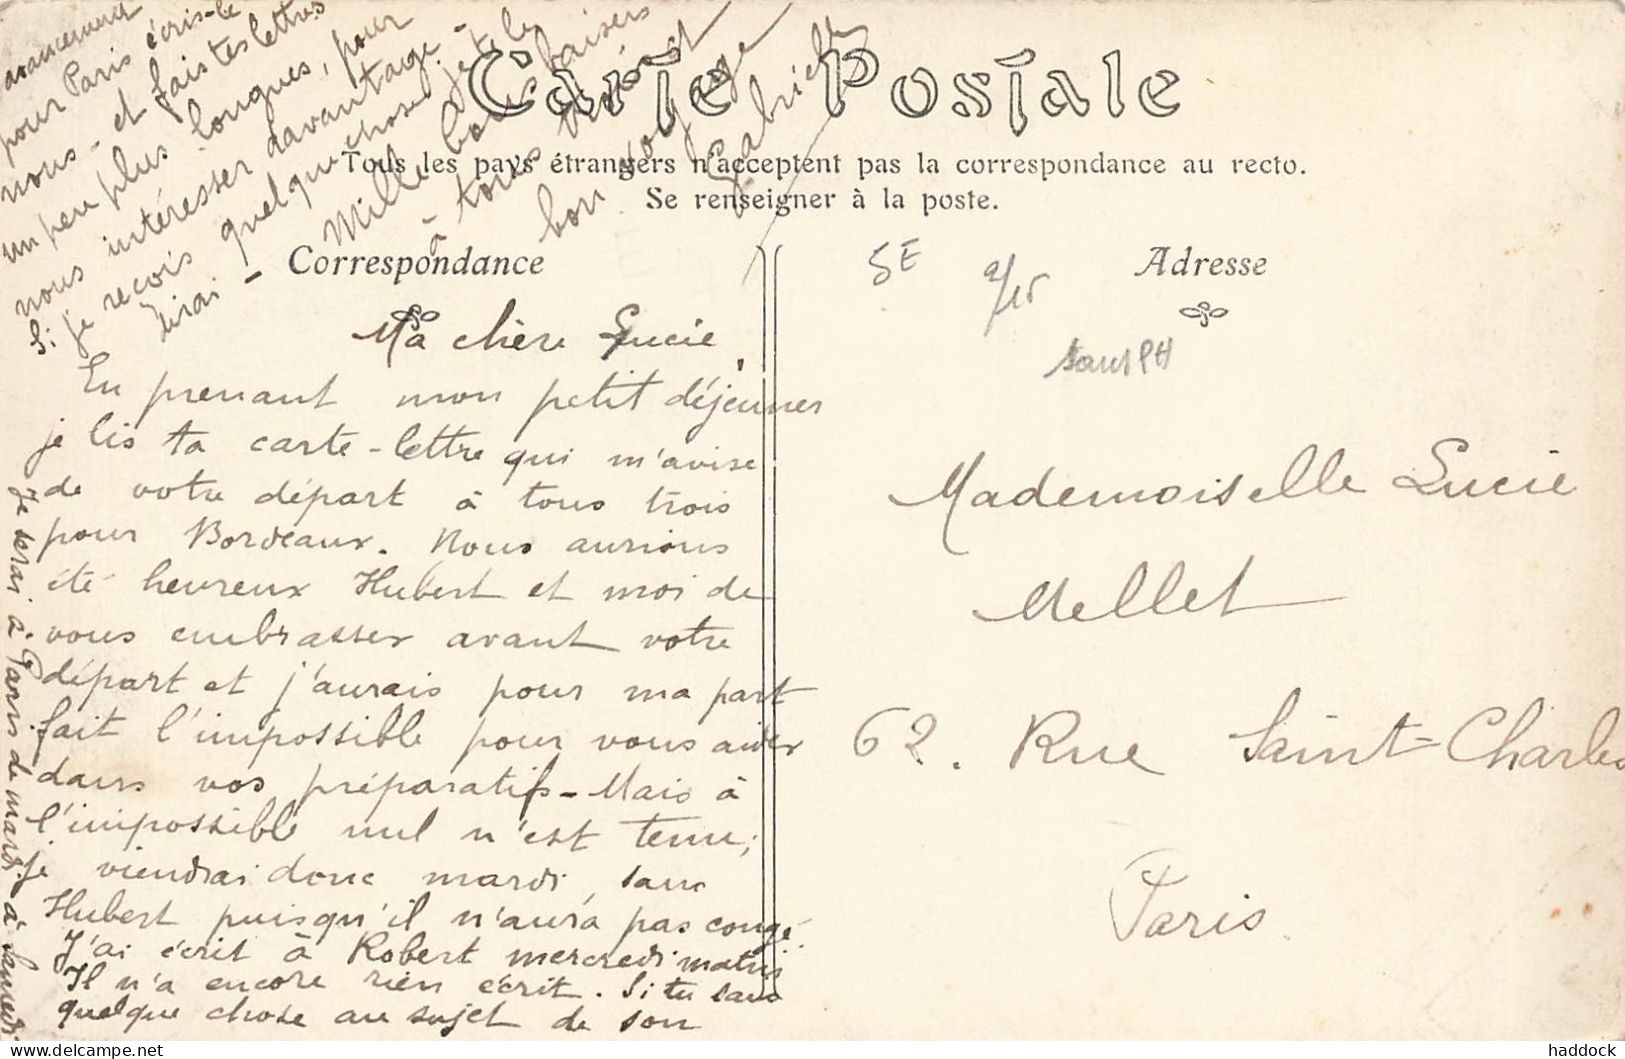 Carte Postale
Tous les pays étrangers n'acceptent pas la correspondance au recto.
Se renseigner à la poste.
Correspondance
Adresse
Ma chère Lucie,
En prenant mon petit déjeuner
je lis ta carte-lettre qui m'avise
de votre départ à tous trois
pour Bordeaux. Nous aurions
été heureux Hubert et moi de
vous embrasser avant votre
départ et j'aurais pour ma part
fait l'impossible pour vous aider
dans vos préparatifs - Mais à
l'impossible nul n'est tenu;
je viendrai donc mardi, sans
Hubert puisqu'il n'aura pas congé.
J'ai écrit à Robert mercredi matin
Il n'a encore rien écrit. Si tu sais
quelque chose au sujet de son
avancement
pour Paris écris-le
nous - et fais tes lettres
un peu plus longues, pour
nous intéresser davantage -
Si je reçois quelque chose je te le
dirai - Mille bons baisers
à tous trois et
bon voyage
Gabrielle
Je serai à Paris de mardi à samedi.
5E
2/15
sans PH
Mademoiselle Lucie
Mellet
62. Rue Saint-Charles
Paris.
haddock